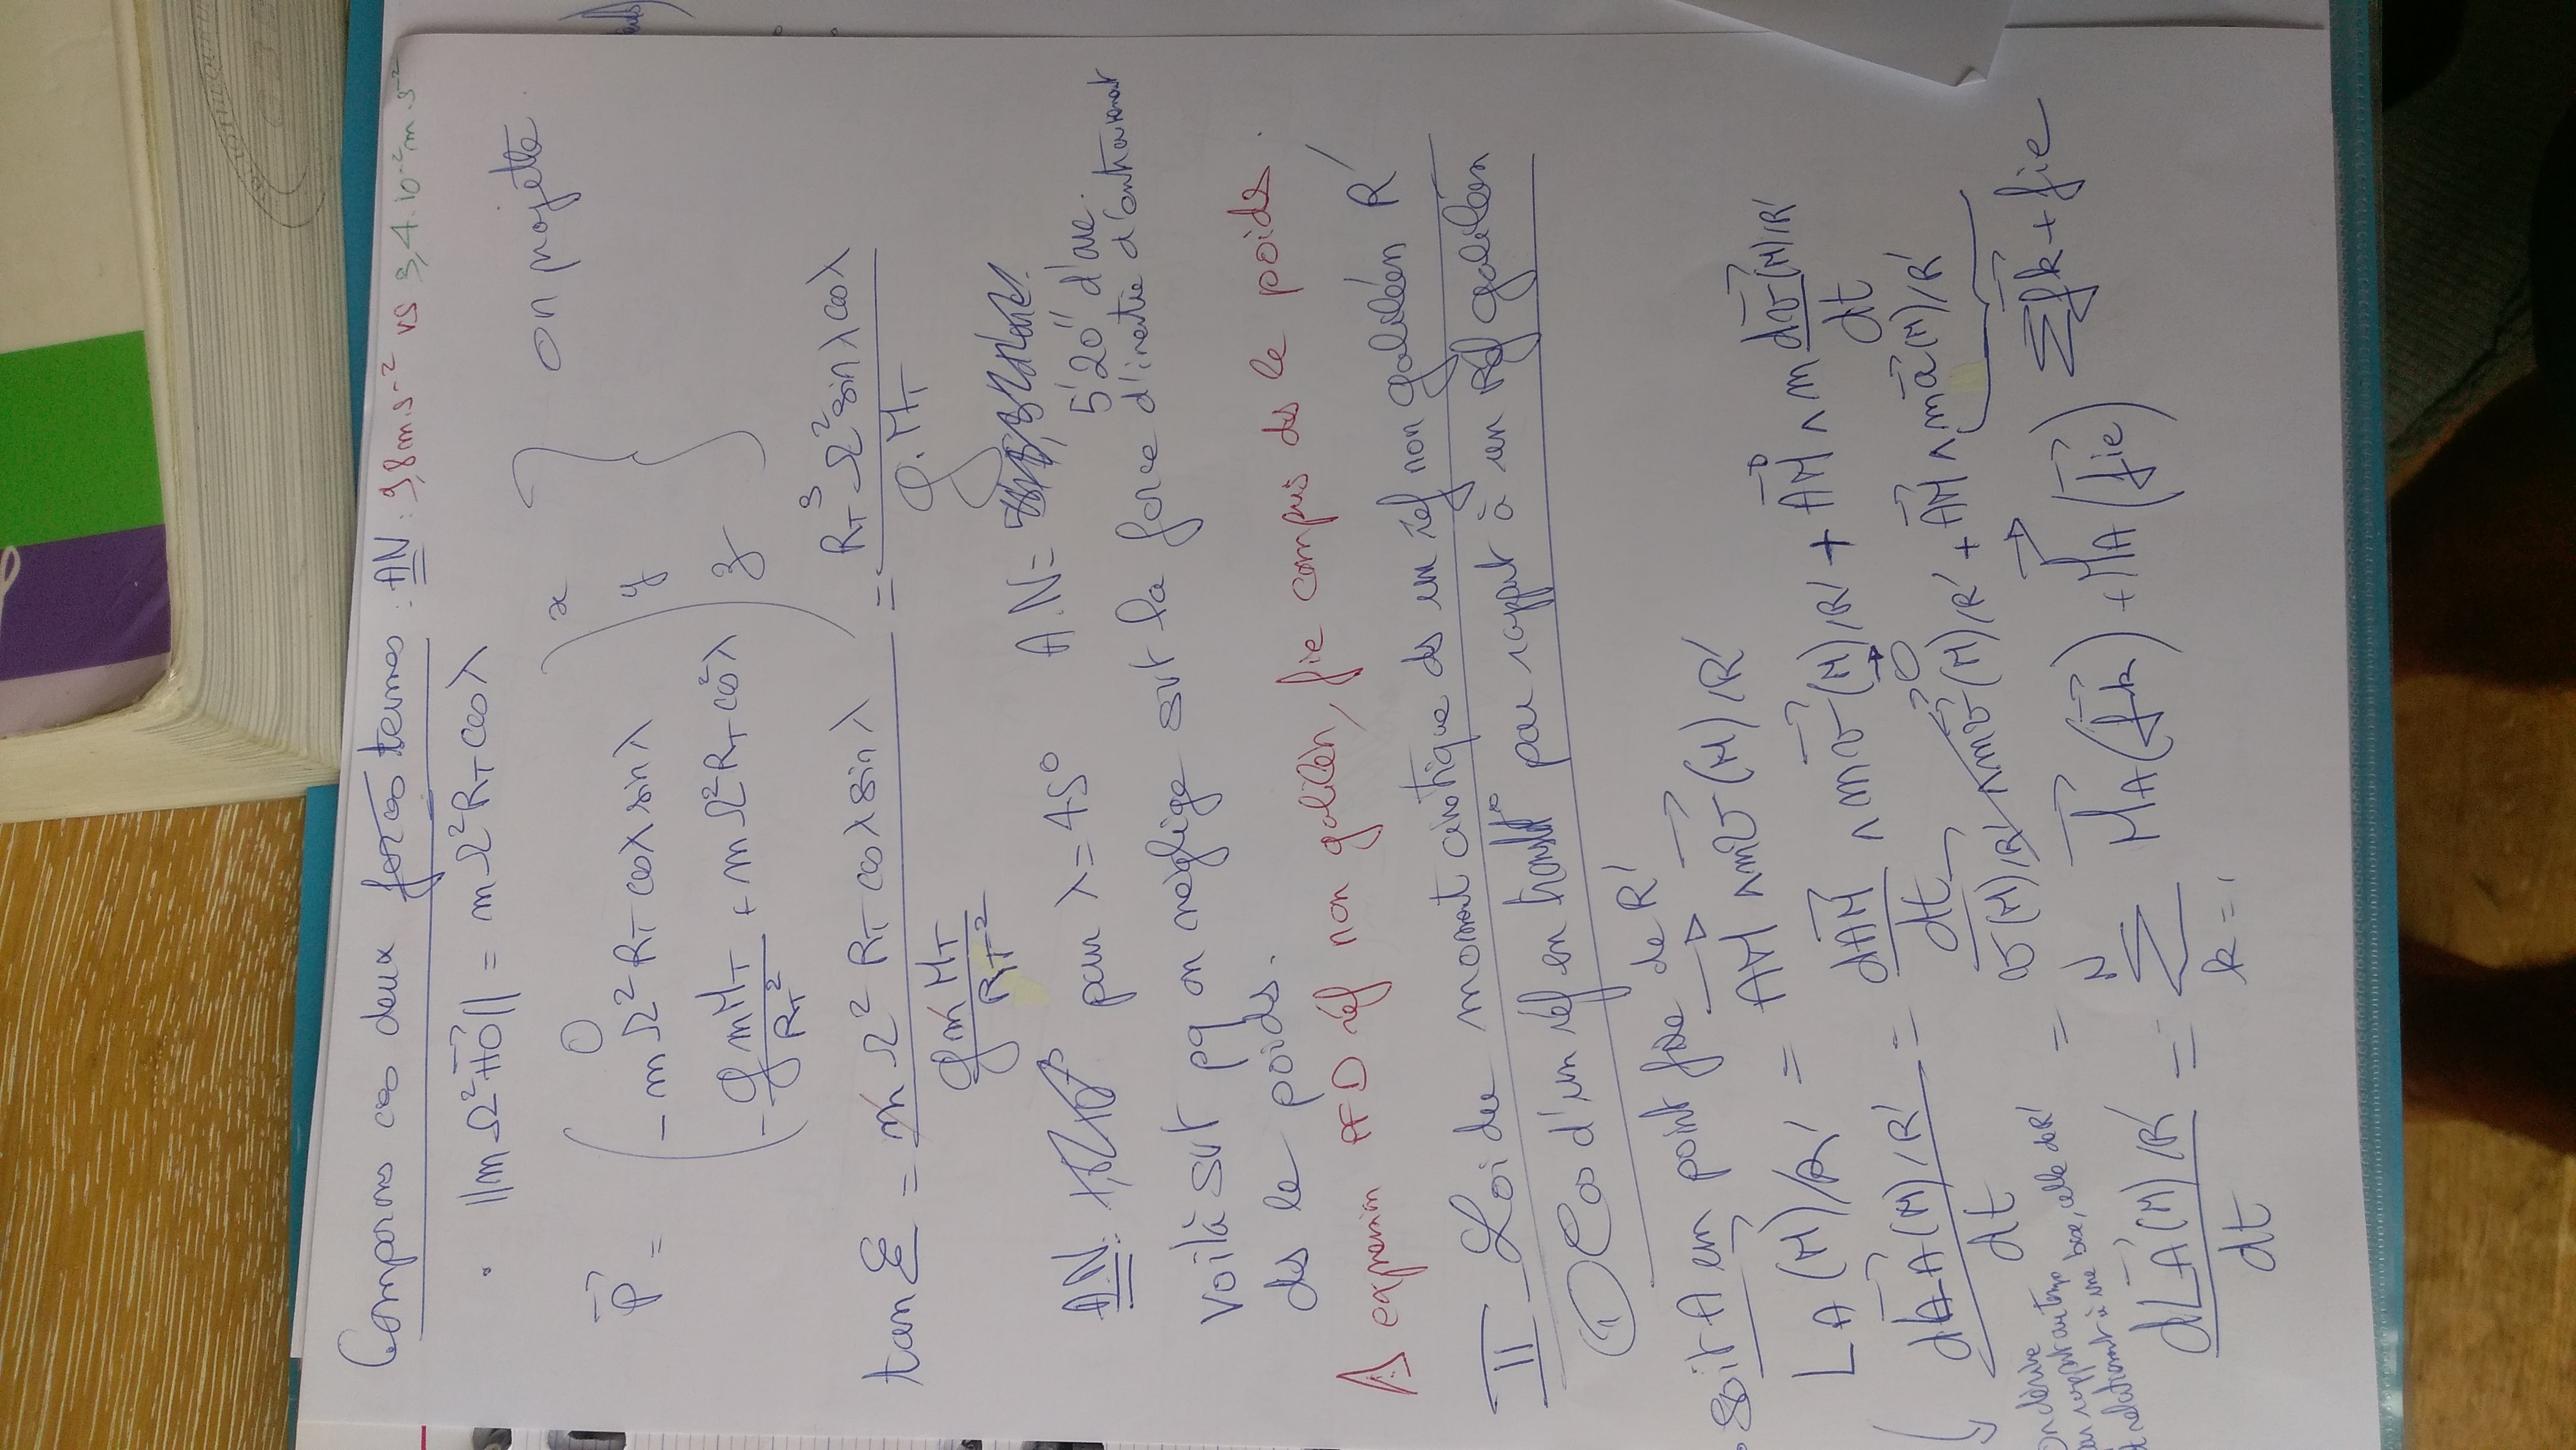 Comparons ces deux forces termes : AN : 9,8 m.s⁻² vs 3,4.10⁻² m.s⁻²
• ||mΩ²HO|| = mΩ²R_T cosλ
P⃗ = ( 0 ; -mΩ²R_T cosλ sinλ ; -G m M_T / R_T² + mΩ²R_T cos²λ ) x y z } on projette
tan ε = mΩ² R_T cosλ sinλ / (G m M_T / R_T²) = R_T³ Ω² sinλ cosλ / G.M_T
AN: pour λ = 45° A.N = 5'20'' d'arc.
Voilà sur pq on néglige sur la force d'inertie d'entraînement
ds le poids.
⚠ expression PFD réf non galiléen, fie compris ds le poids.
II - Loi du moment cinétique ds un réf non galiléen R'
① Cas d'un réf en translat° par rapport à un Réf galiléen
• Soit A un point fixe de R'
L_A(M)/R' = AM⃗ ∧ mv⃗(M)/R'
dL⃗_A(M)/R' / dt = dAM⃗/dt ∧ mv⃗(M)/R' + AM⃗ ∧ m dv⃗(M)/R' / dt
On dérive
par rapport au temp
et relativement à une base, celle de R'
= v⃗(M)/R' ∧ mv⃗(M)/R' 0⃗ + AM⃗ ∧ ma⃗(M)/R'
Σf⃗k + fie
dL⃗_A(M)/R' / dt = Σ_{k=1}^{N} M⃗_A(f⃗k) + M⃗_A(f⃗ie)